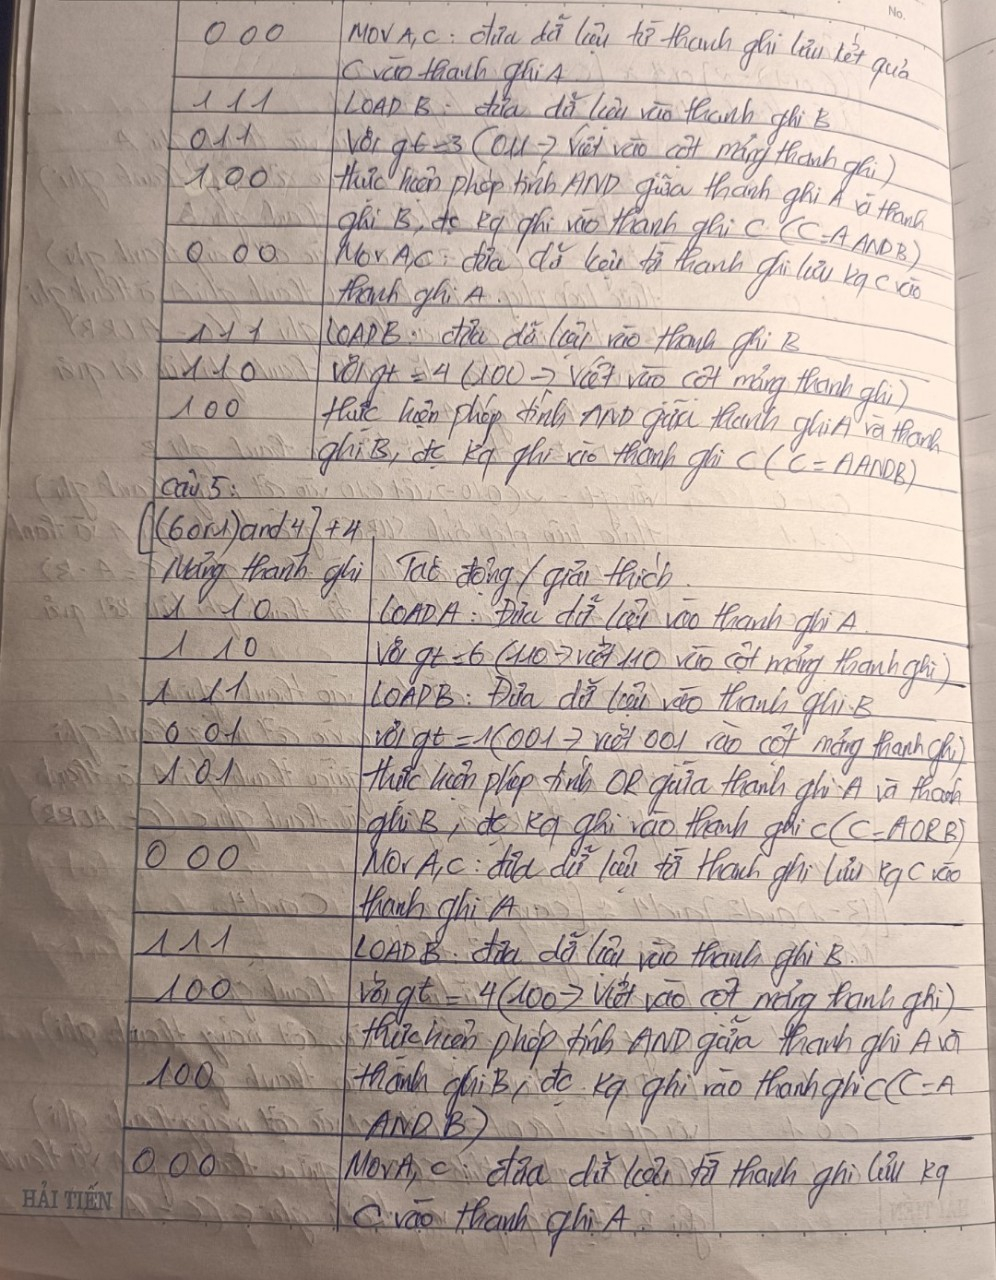 No.
0 0 0 MOV A, C : đưa dữ liệu từ thanh ghi lưu kết quả
C vào thanh ghi A
1 1 1 LOAD B : đưa dữ liệu vào thanh ghi B
0 1 1 với gt = 3 (011 → viết vào cột mảng thanh ghi)
1 0 0 thực hiện phép tính AND giữa thanh ghi A và thanh
ghi B, đc kq ghi vào thanh ghi C (C = A AND B)
0 0 0 MOV A, C : đưa dữ liệu từ thanh ghi lưu kq C vào
thanh ghi A.
1 1 1 LOAD B : đưa dữ liệu vào thanh ghi B
1 1 0 với gt = 4 (100 → viết vào cột mảng thanh ghi)
1 0 0 thực hiện phép tính AND giữa thanh ghi A và thanh
ghi B, đc kq ghi vào thanh ghi C (C = A AND B)
Câu 5:
[(6 or 1) and 4] + 4
Mảng thanh ghi Tác động / giải thích
1 1 0 LOAD A : Đưa dữ liệu vào thanh ghi A
1 1 0 với gt = 6 (110 → viết 110 vào cột mảng thanh ghi)
1 1 1 LOAD B : Đưa dữ liệu vào thanh ghi B
0 0 1 với gt = 1 (001 → viết 001 vào cột mảng thanh ghi)
1 0 1 thực hiện phép tính OR giữa thanh ghi A và thanh
ghi B, đc kq ghi vào thanh ghi C (C = A OR B)
0 0 0 MOV A, C : đưa dữ liệu từ thanh ghi lưu kq C vào
thanh ghi A
1 1 1 LOAD B : đưa dữ liệu vào thanh ghi B.
1 0 0 với gt = 4 (100 → viết vào cột mảng thanh ghi)
thực hiện phép tính AND giữa thanh ghi A và
1 0 0 thanh ghi B, đc kq ghi vào thanh ghi C (C = A
AND B)
0 0 0 MOV A, C : đưa dữ liệu từ thanh ghi lưu kq
HẢI TIẾN C vào thanh ghi A.